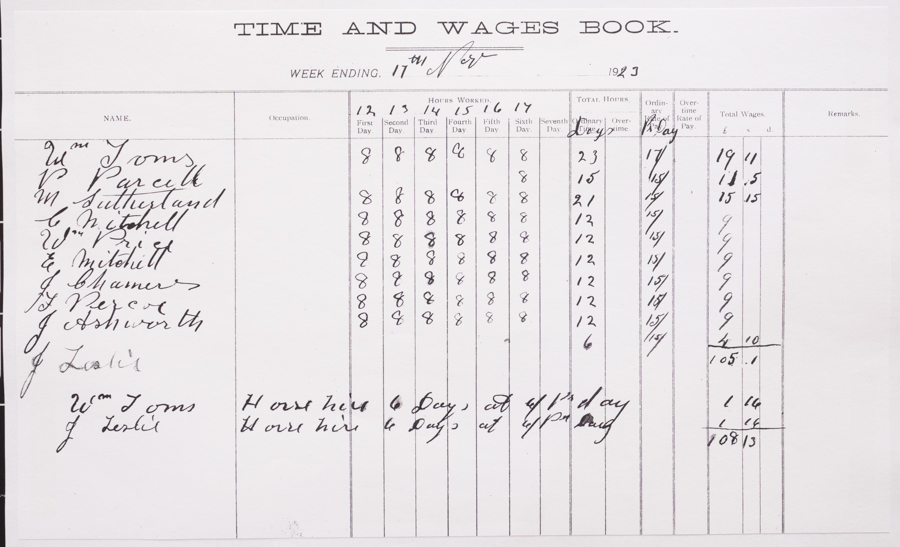 TIME AND WAGES BOOK.
WEEK ENDING, 17th Nov 1923
NAME. Occupation. HOURS WORKED. TOTAL HOURS Ordinary Rate of Pay Overtime Rate of Pay Total Wages. Remarks.
12 13 14 15 16 17
First Day. Second Day. Third Day. Fourth Day. Fifth Day. Sixth Day. Seventh Day. Ordinary Time. Days Overtime. £ s. d.
Wm Toms 8 8 8 8 8 8 23 17/ 19 11
P Parcell 8 15 15/ 11 .5
M Sutherland 8 8 8 8 8 8 21 15/ 15 15
C Mitchell 8 8 8 8 8 8 12 15/ 9
Wm Price 8 8 8 8 8 8 12 15/ 9
E Mitchell 8 8 8 8 8 8 12 15/ 9
J Chamers 8 8 8 8 8 8 12 15/ 9
F Percoe 8 8 8 8 8 8 12 15/ 9
J Ashworth 8 8 8 8 8 8 12 15/ 9
J Leslie 6 15/ 4 10
105 .1
Wm Toms Horse hire 6 Days at 4/ Pr day 1 14
J Leslie Horse hire 6 Days at 4/ Pr Day 1 14
108 13